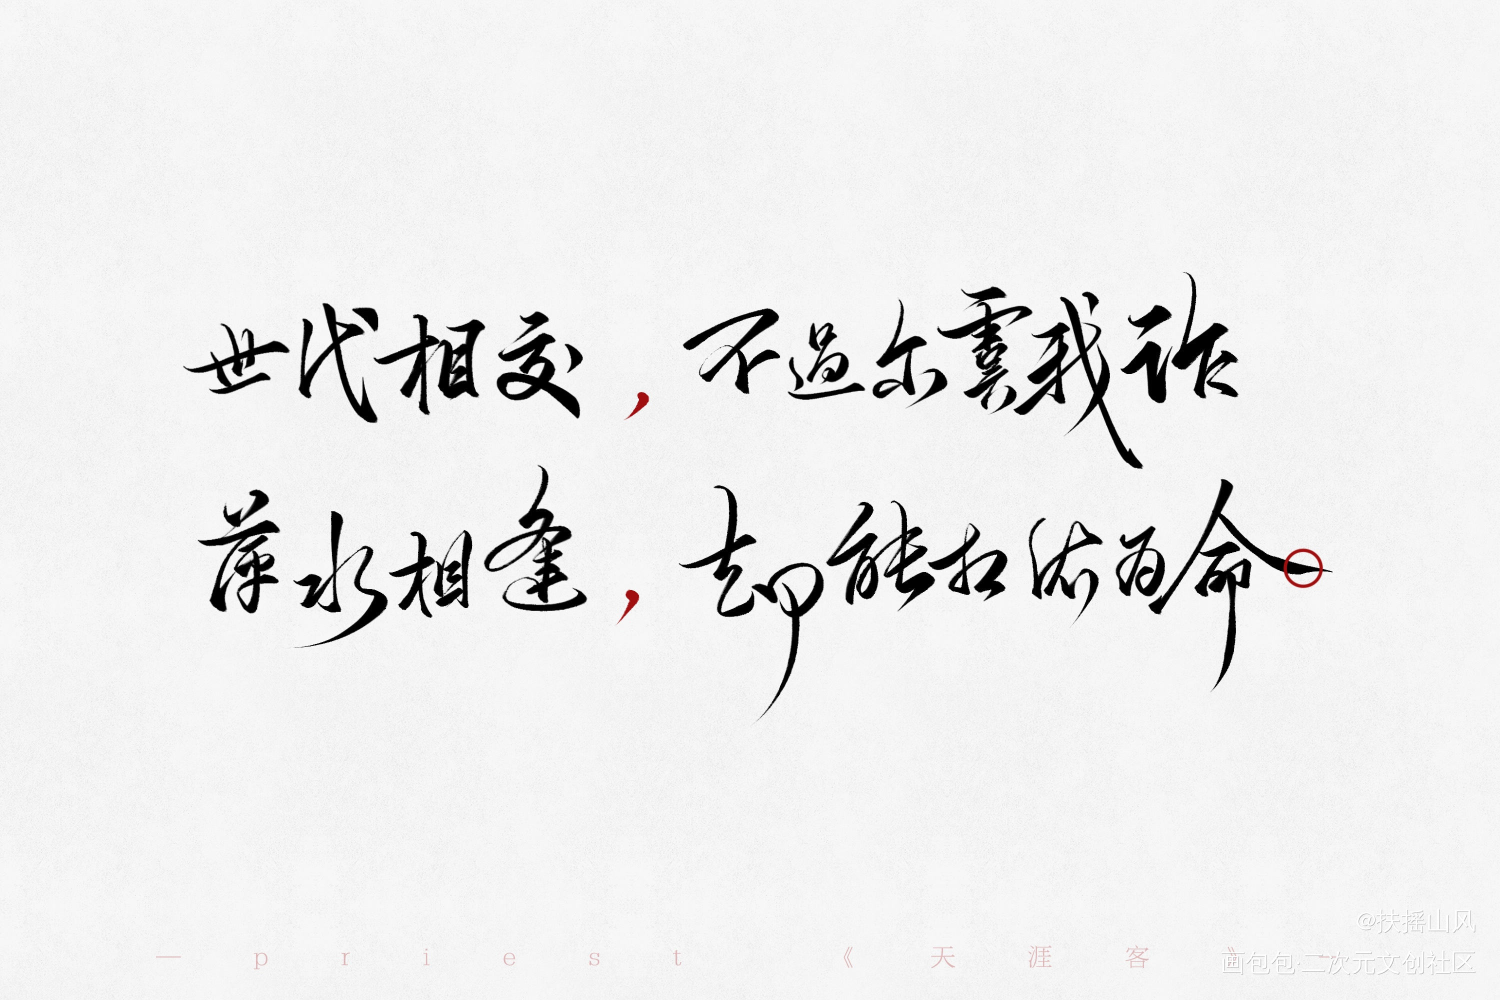 世代相交，不過尔虞我诈
萍水相逢，却能相依为命。
@扶摇山风
— priest 《天涯客》
画包包·二次元文创社区